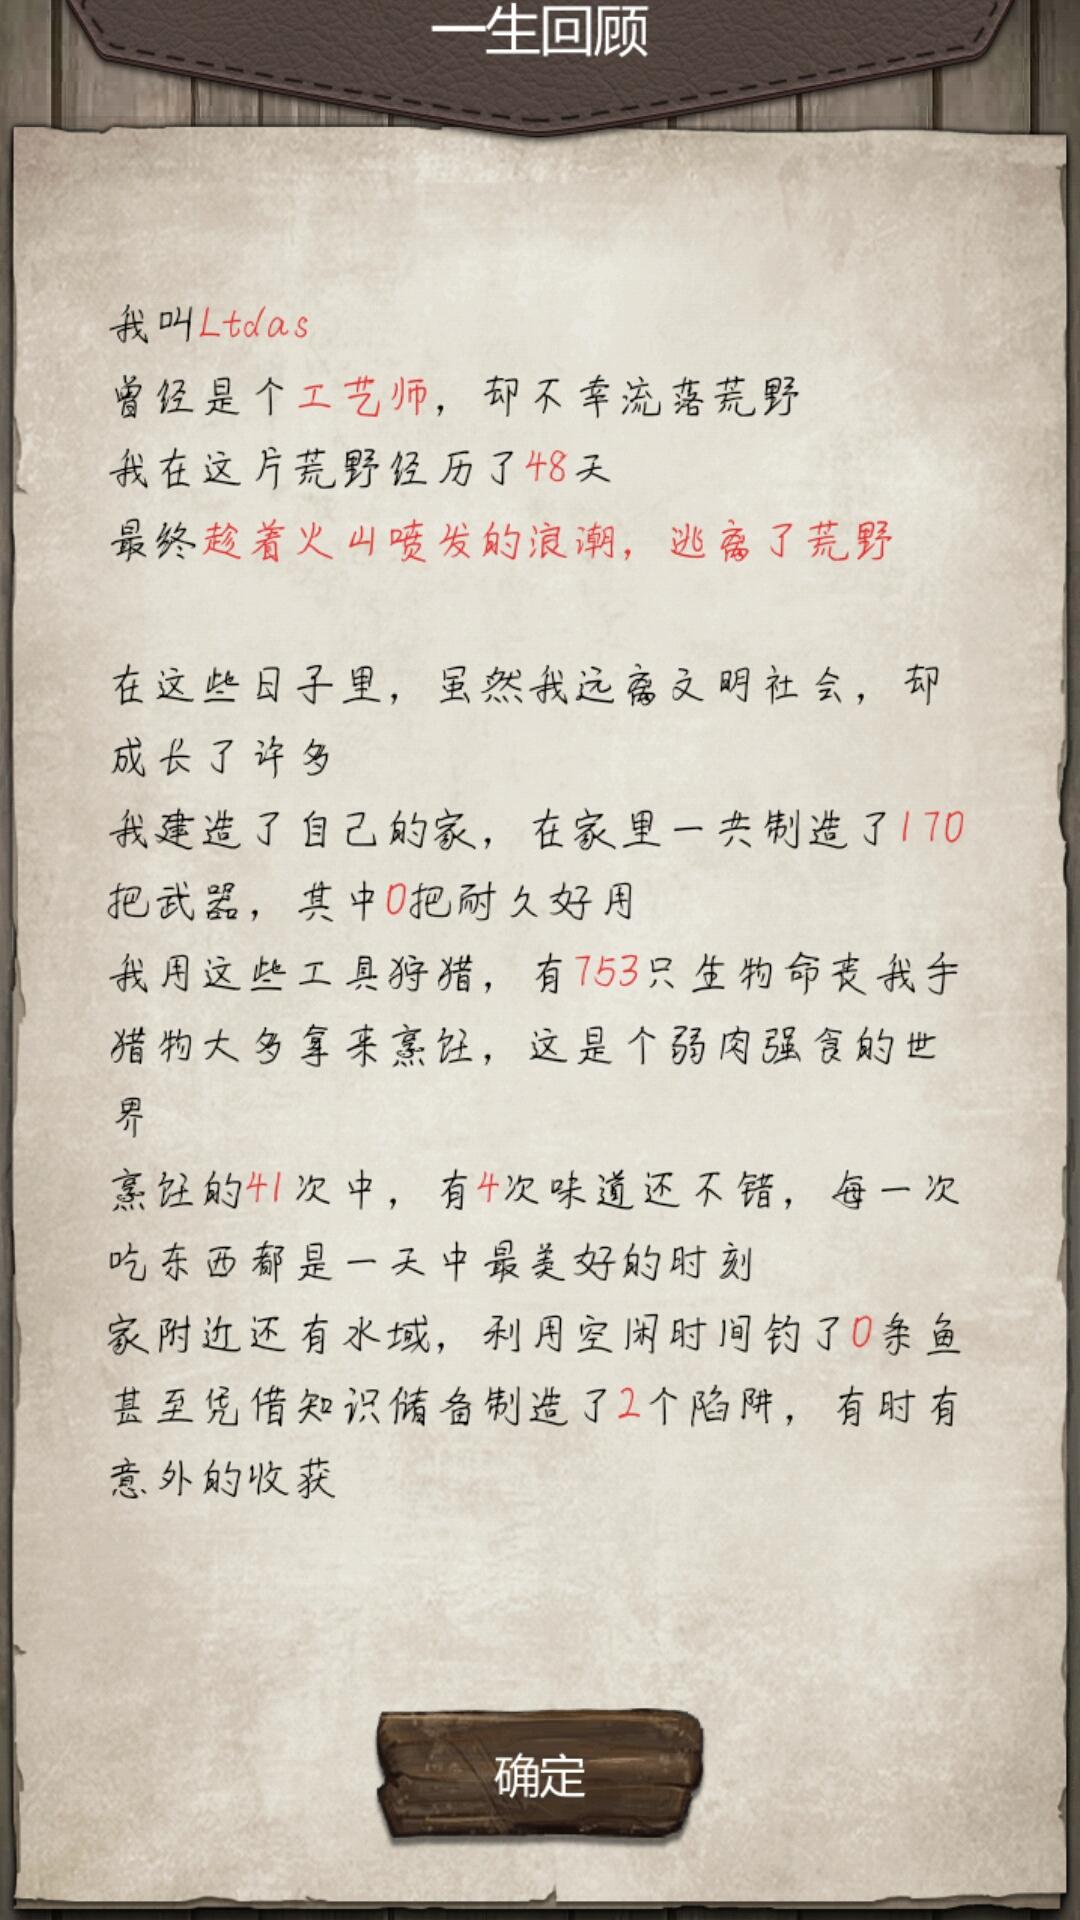 一生回顾
我叫Ltdas
曾经是个工艺师，却不幸流落荒野
我在这片荒野经历了48天
最终趁着火山喷发的浪潮，逃离了荒野
在这些日子里，虽然我远离文明社会，却
成长了许多
我建造了自己的家，在家里一共制造了170
把武器，其中0把耐久好用
我用这些工具狩猎，有753只生物命丧我手
猎物大多拿来烹饪，这是个弱肉强食的世
界
烹饪的41次中，有4次味道还不错，每一次
吃东西都是一天中最美好的时刻
家附近还有水域，利用空闲时间钓了0条鱼
甚至凭借知识储备制造了2个陷阱，有时有
意外的收获
确定